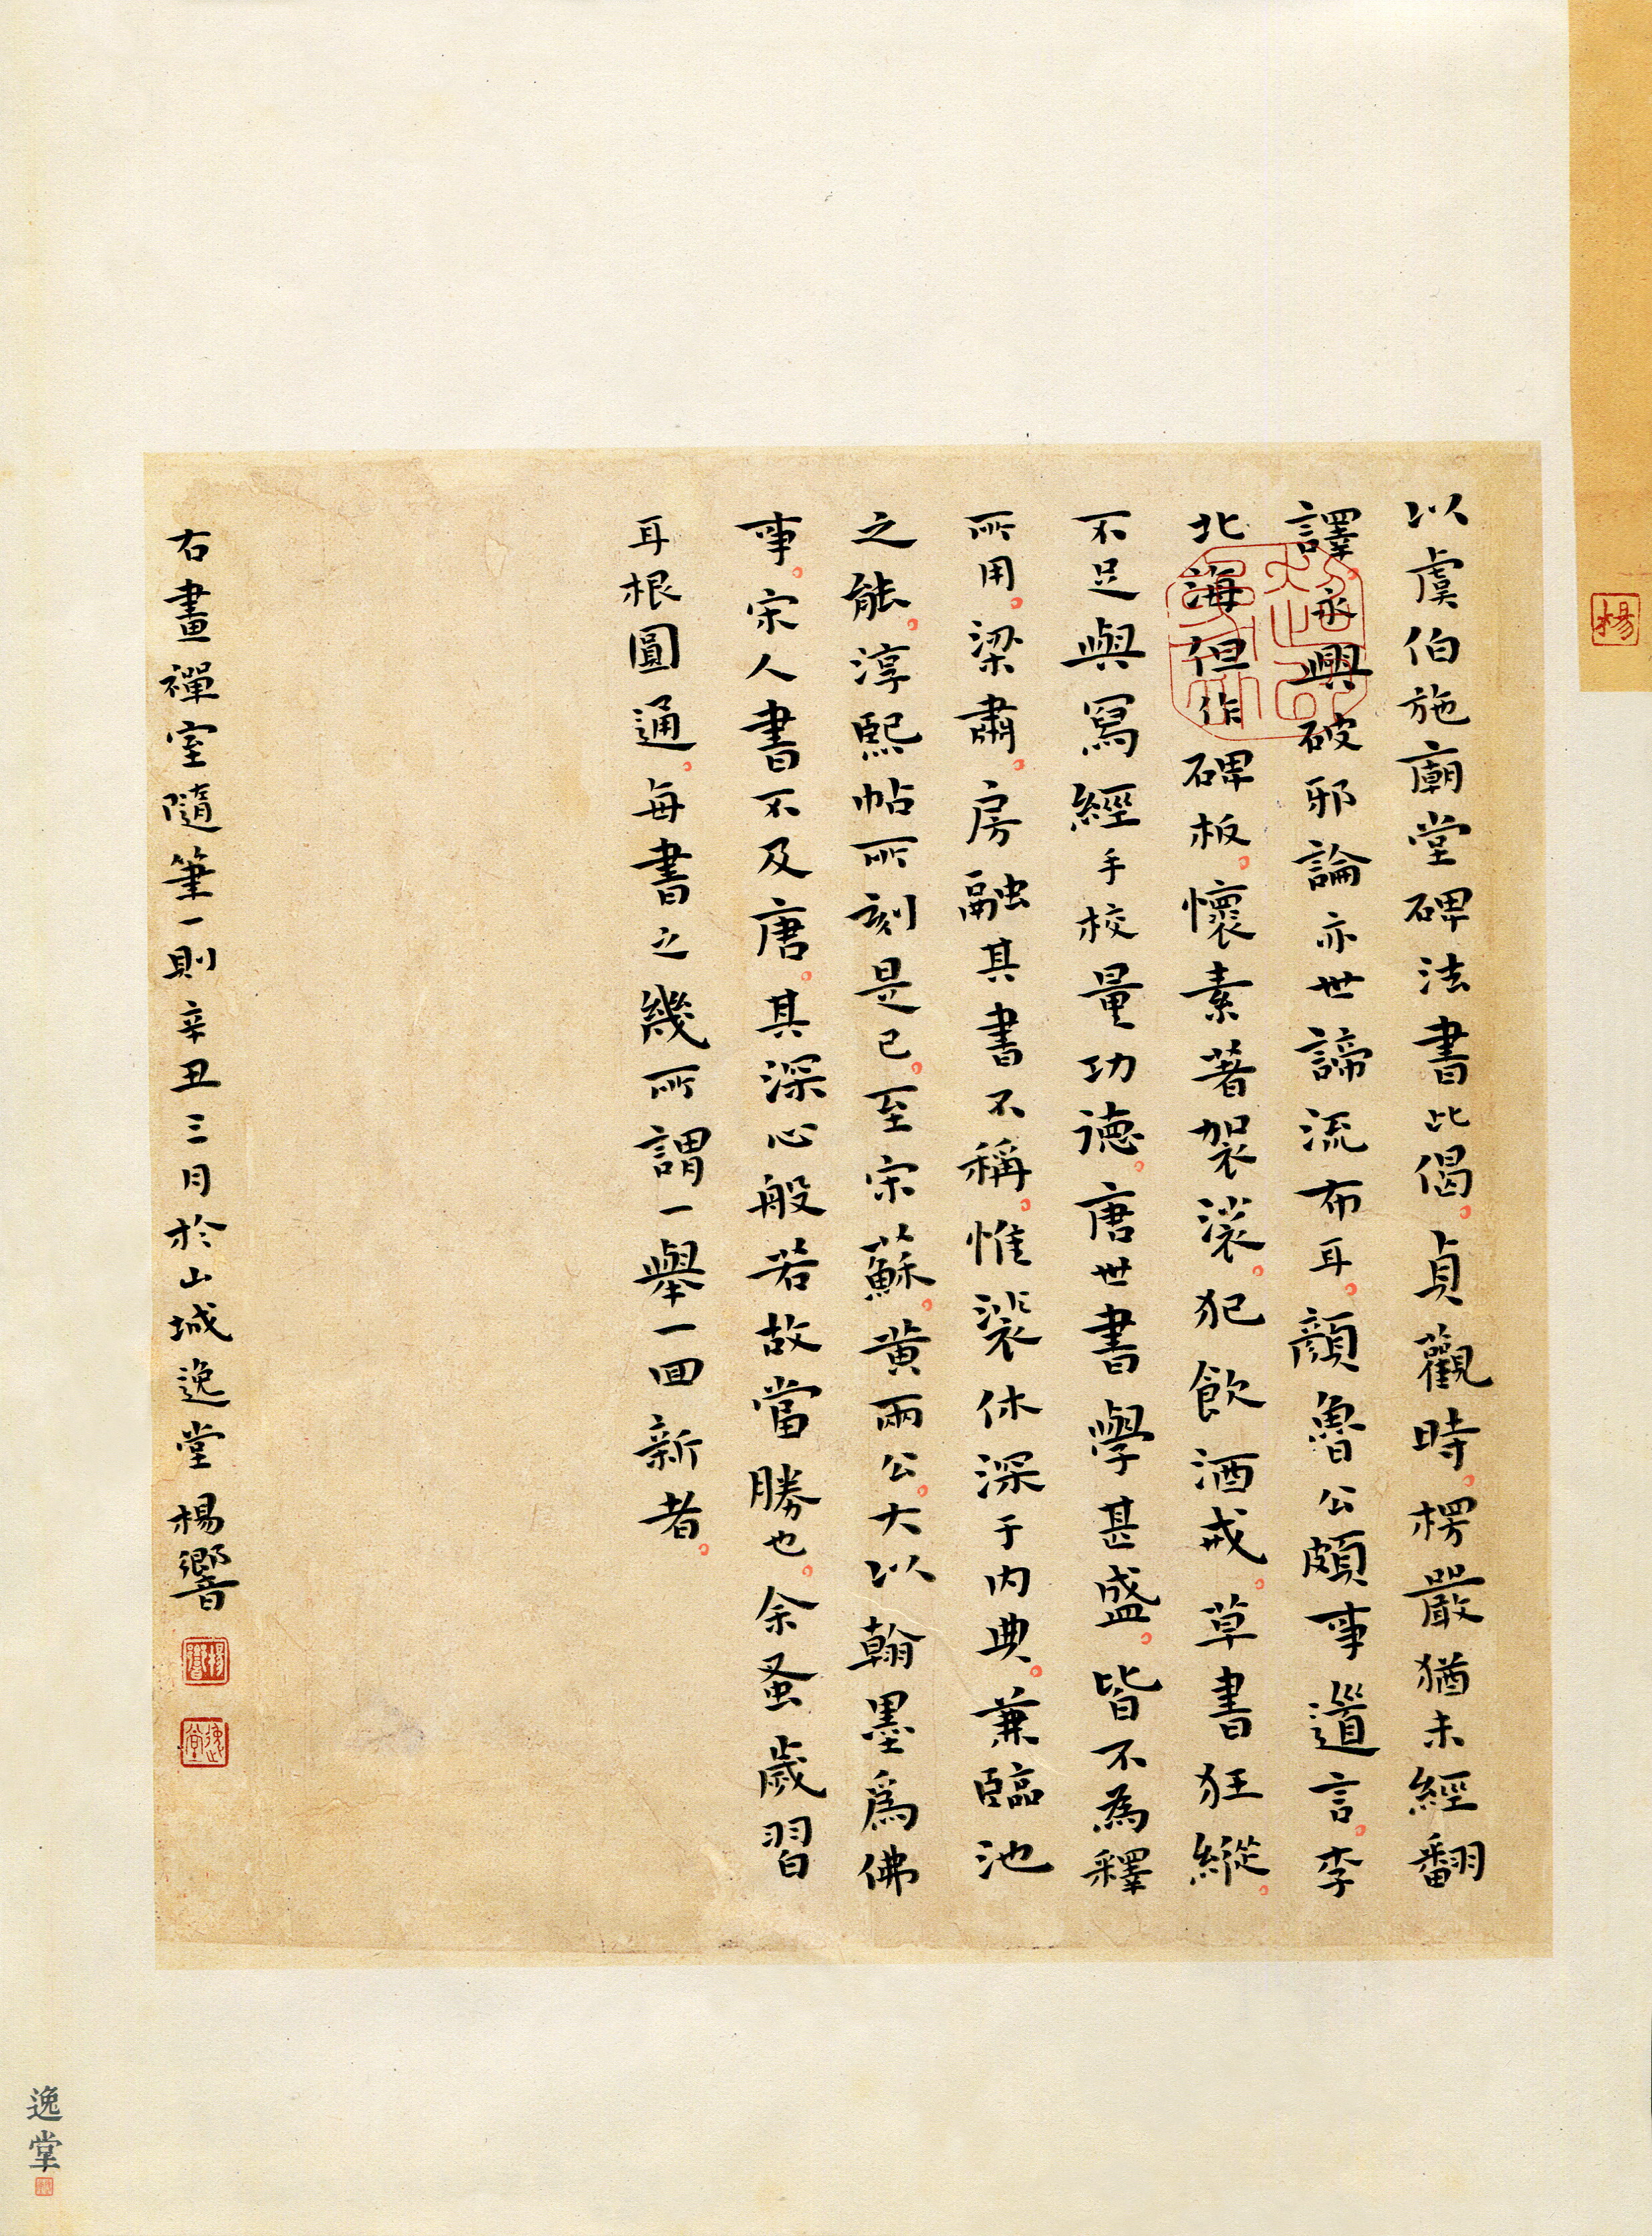 楊
以虞伯施廟堂碑法書此偈貞觀時楞嚴猶未經翻
譯永興破邪論亦世諦流布耳顏魯公頗事道言李
北海但作碑板懷素著袈裟犯飲酒戒草書狂縱
不足與寫經手校量功德唐世書學甚盛皆不為釋
所用梁肅房融其書不稱惟裴休深于內典兼臨池
之能淳熙帖所刻是已至宋蘇黃兩公大以翰墨為佛
事宋人書不及唐其深心般若故當勝也余蚤歲習
耳根圓通每書之幾所謂一舉一回新者
右畫禪室隨筆一則辛丑三月於山城逸堂楊響
楊響
逸堂
逸堂